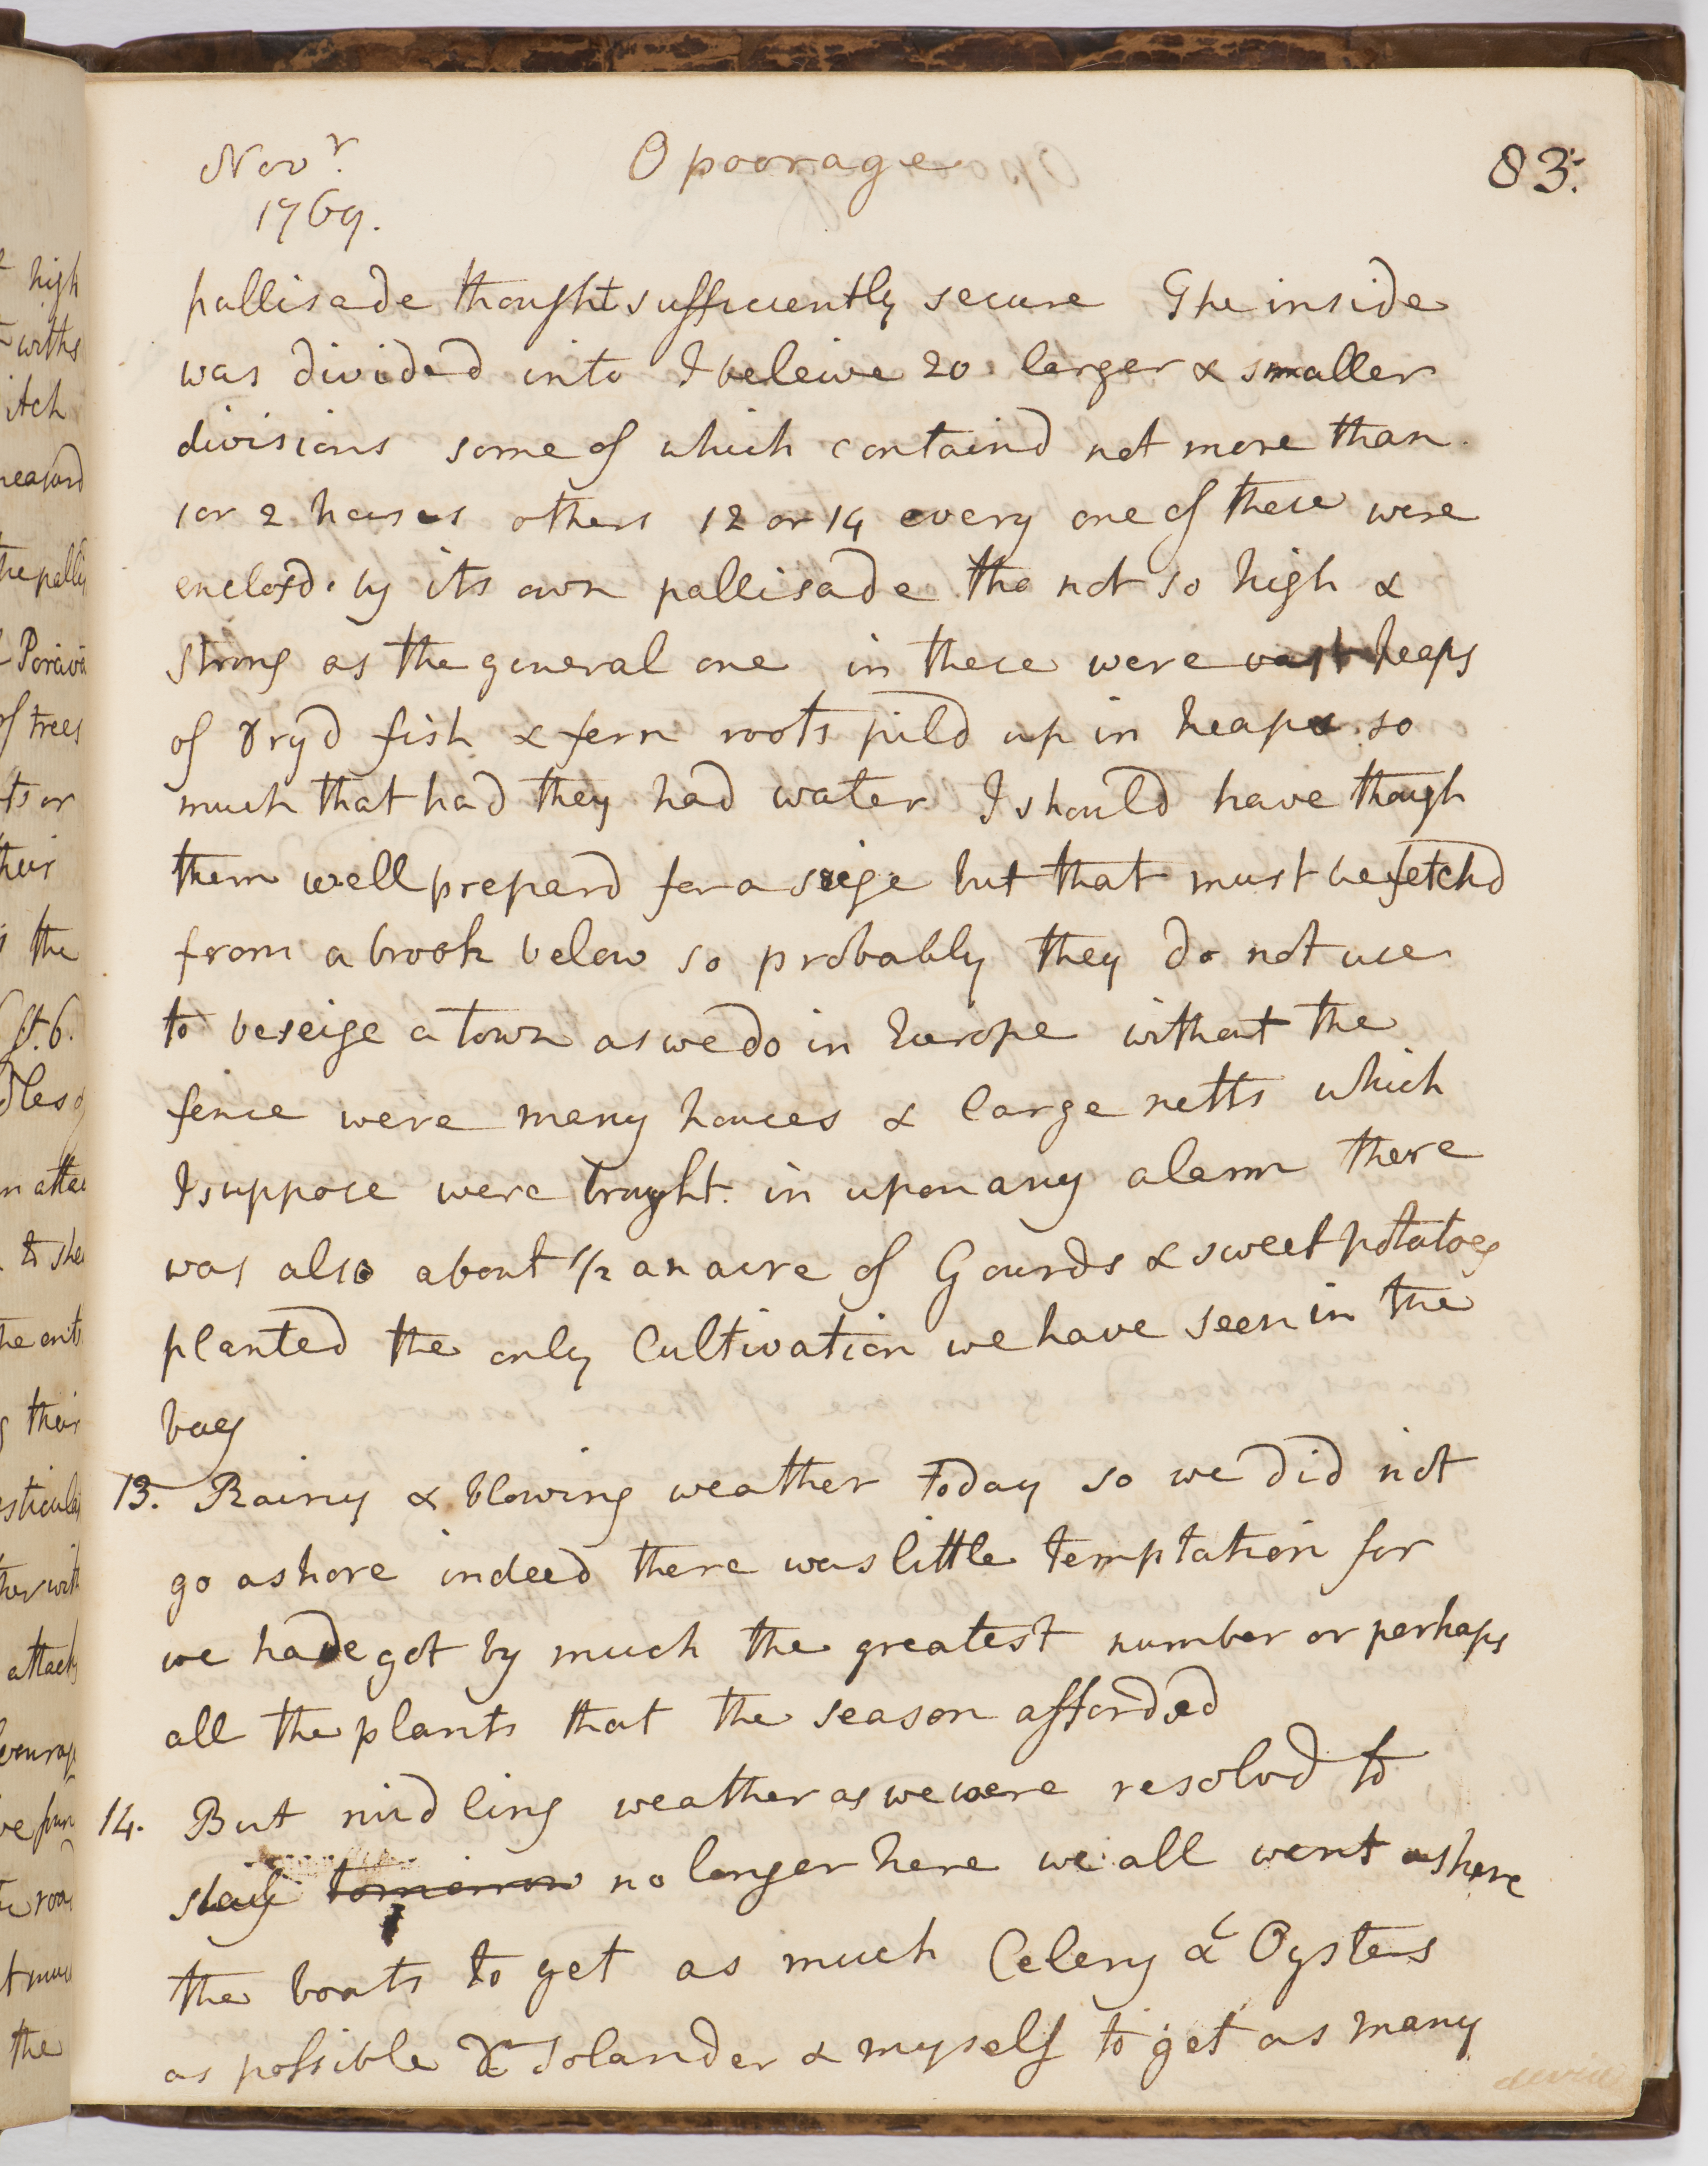 Novr. Opoorage 83.
1769.
pallisade thought sufficiently secure The inside
was divided into I beleive 20 larger & smaller
divisions some of which containd not more than
1 or 2 houses others 12 or 14 every one of these were
enclosd by its own pallisade tho not so high &
strong as the general one in these were vast heaps
of dryd fish & fern roots pild up in heaps so
much that had they had water I should have though
them well prepard for a seige but that must be fetchd
from a brook below so probably they do not use
to beseige a town as we do in Europe without the
fence were many houses & large netts which
I suppose were brought in upon any alarm there
was also about 1/2 an acre of Gourds & sweet potatoes
planted the only Cultivation we have seen in the
bay
13. Rainy & blowing weather today so we did not
go ashore indeed there was little temptation for
we have got by much the greatest number or perhaps
all the plants that the season afforded
14. But midling weather as we were resolvd to
stay tomorrow no longer here we all went ashore
the boats to get as much Celery & Oysters
as possible Dr Solander & myself to get as many
high
withs
itch
the
of trees
ts or
their
the
ft. 6.
to
their
attack
the